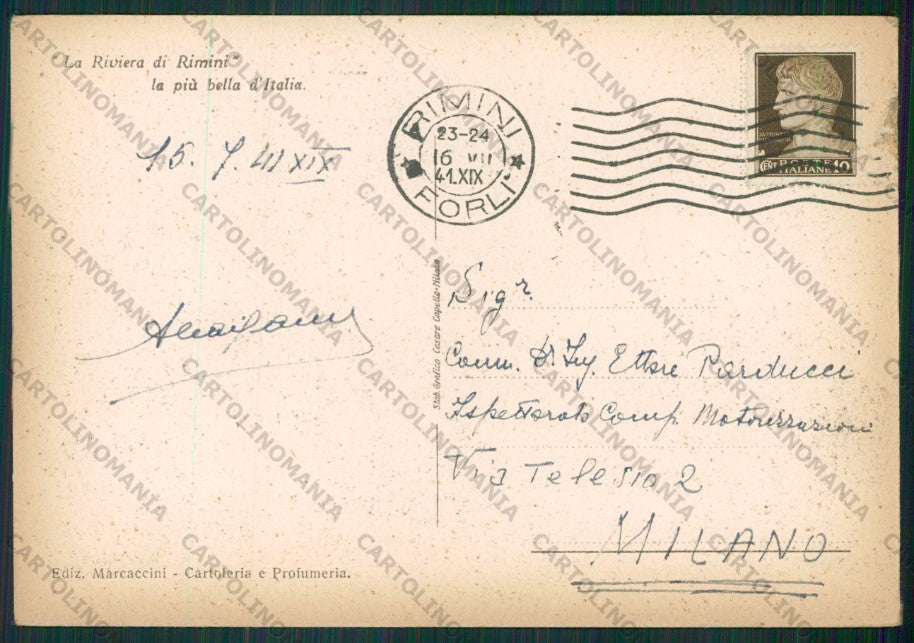 "La Riviera di Rimini"
la più bella d'Italia.
15. 7. 41 XIX
RIMINI
23-24
16 VII
41.XIX
FORLI
CENT POSTE 10
ITALIANE
Sigr.
Comm. Dr. Ing. Ettore Parducci
Ispettorato Comp. Motorizzazioni
Via Telesio 2
MILANO
Stab. Grafico Cesare Capello-Milano
Ediz. Marcaccini - Cartoleria e Profumeria.
CARTOLINOMANIA